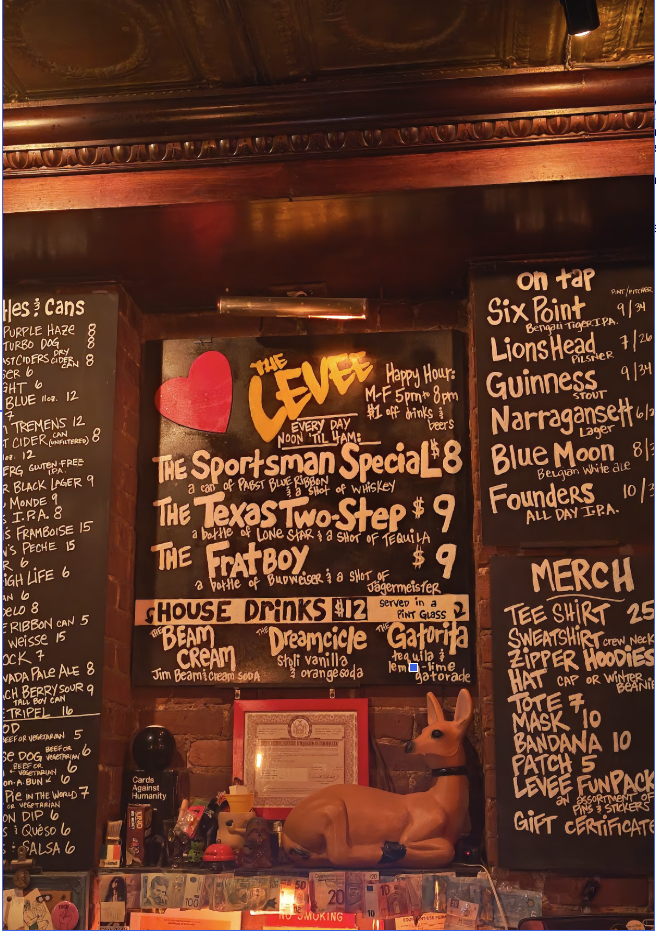 les & Cans
PURPLE HAZE 8
TURBO DOG 8
CIDERS DRY CIDER CAN 8
6
GHT 6
BLUE 11oz. 12
7
TREMENS 12
T CIDER CAN (UNFILTERED) 8
oz. 12
ERG GLUTEN-FREE I.P.A.
R BLACK LAGER 9
MONDE 9
S I.P.A. 8
FRAMBOISE 15
'S PECHE 15
6
IGH LIFE 6
6
ELO 8
RIBBON CAN 5
WEISSE 15
OCK 7
VADA PALE ALE 8
CH BERRY SOUR 9
TALL BOY CAN
TRIPEL 16
OD
BEEF OR VEGETARIAN 5
DOG BEEF OR VEGETARIAN 6
BEEF OR VEGETARIAN 6
ON-A-BUN 6
PIE IN THE WORLD 7
OR VEGETARIAN
ON DIP 6
& QUESO 6
& SALSA 6
THE
LEVEE
Happy Hour:
M-F 5pm to 8pm
$1 off drinks &
beers
EVERY DAY
NOON 'TIL 4AM:
THE Sportsman Special $8
a can of PABST BLUE RIBBON
& a SHOT of WHISKEY
THE Texas Two-Step $9
a bottle of LONE STAR & a SHOT of TEQUILA
THE FRATBOY $9
a bottle of BUDWEISER & a SHOT of
Jägermeister
HOUSE DRINKS $12 served in a PINT GLASS
THE BEAM CREAM
Jim Beam & cream SODA
THE Dreamcicle
stoli vanilla
& orange soda
THE Gatorita
tequila &
gatorade
on tap
PINT/PITCHER
Six Point 9/34
Bengali Tiger I.P.A.
LionsHead 7/26
PILSNER
Guinness 9/34
STOUT
Narragansett 6/2
Lager
Blue Moon 8/3
Belgian White ale
Founders 10/3
ALL DAY I.P.A.
MERCH
TEE SHIRT 25
SWEATSHIRT crew Neck
ZIPPER HOODIES
HAT CAP OR WINTER BEANIE
TOTE 7
MASK 10
BANDANA 10
PATCH 5
LEVEE FUNPACK
an ASSORTMENT OF
PINS & STICKERS
GIFT CERTIFICATE
Cards
Against
Humanity
100
50
20
10
NO SMOKING